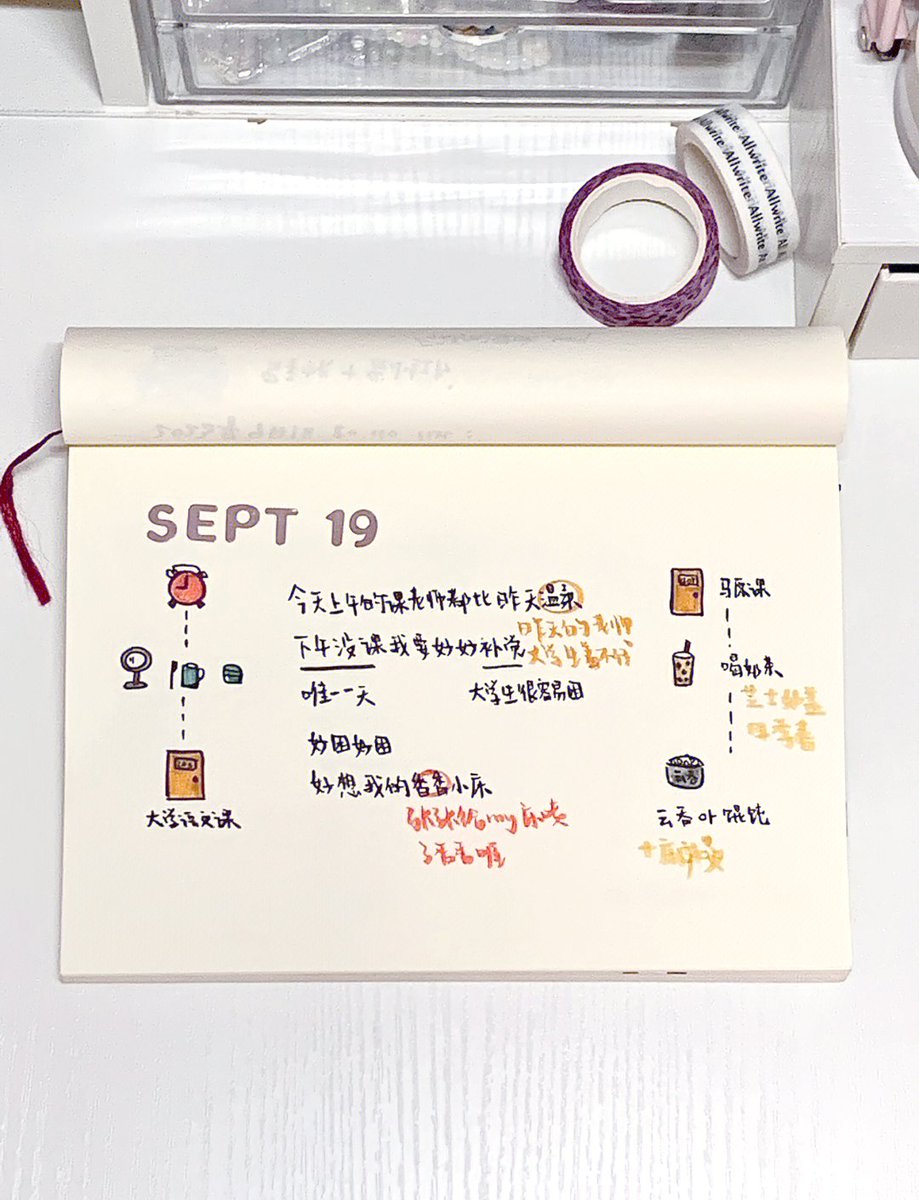 Allwrite Allwrite Allwrite
Allwrite Allwrite
SEPT 19
今天上午的课老师都比昨天温柔
昨天的老师
大学生
下午没课我要好好补觉
唯一一天
大学生很容易困
好困好困
好想我的香香小床
my 床
了香香喔
大学语文课
马原课
喝奶茶
芝士奶盖
云吞 or 馄饨